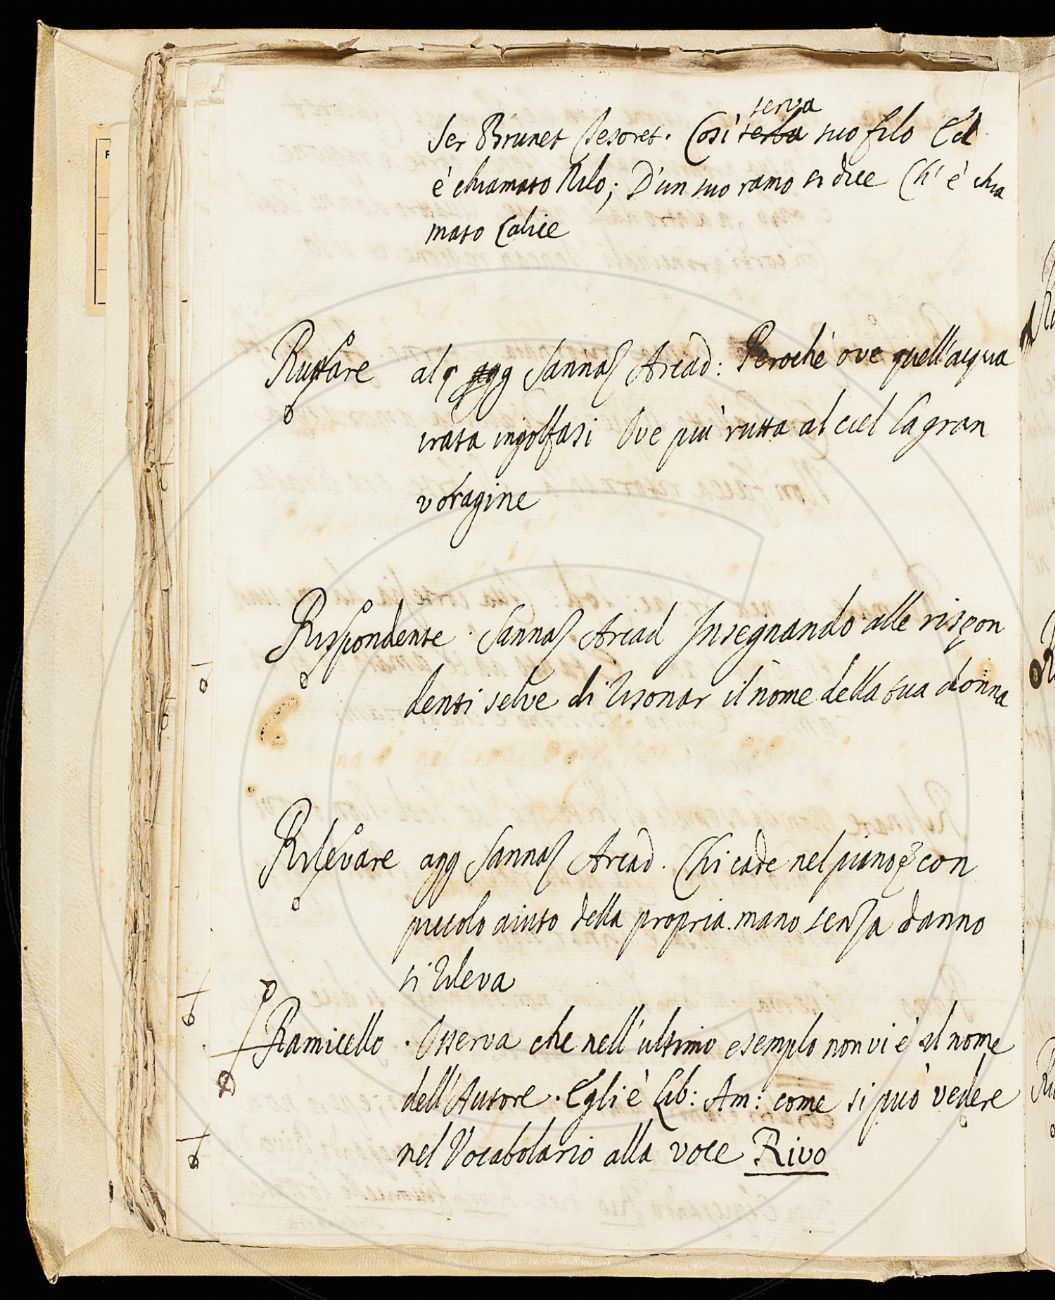 Ser Brunet Tesoret. Così serba serva suo filo Ed
è chiamato Nilo; D'un suo ramo si dice Ch' è chia
mato Calice
Ruttare alq agg Sannaz Arcad: Peroche ove quell'acqua
irata ingolfasi Ove più rutta al ciel la gran
voragine
Rispondente. Sannaz Arcad Insegnando alle rispon
denti selve di risonar il nome della sua donna
Rilevare agg Sannaz Arcad. Chi cade nel piano con
piccolo aiuto della propria mano senza danno
si rileva
Ramicello. Osserva che nell'ultimo esemplo non vi è il nome
dell'Autore. Egli è Lib: Am: come si può vedere
nel Vocabolario alla voce Rivo